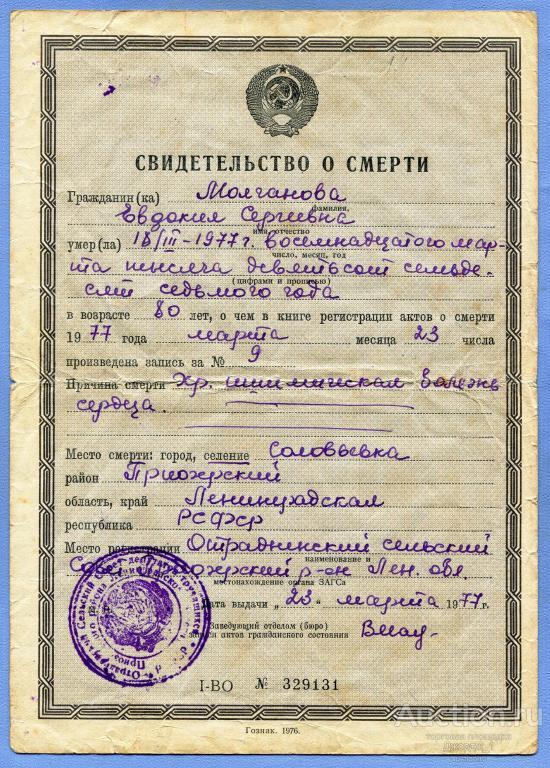 СВИДЕТЕЛЬСТВО О СМЕРТИ
Гражданин(ка) Молчанова
фамилия,
Евдокия Сергеевна
имя, отчество
умер(ла) 18/III-1977 г. восемнадцатого мар-
число, месяц, год
та тысяча девятьсот семьде-
(цифрами и прописью)
сят седьмого года
в возрасте 80 лет, о чем в книге регистрации актов о смерти
1977 года марта месяца 23 числа
произведена запись за № 9
Причина смерти Хр. ишимическая болезнь
сердца
Место смерти: город, селение Соловьевка
район Приозерский
область, край Ленинградская
республика РСФСР
Место регистрации Отрадненский сельский
наименование и
Совет Приозерский р-он Лен. обл.
местонахождение органа ЗАГСа
Дата выдачи „23" марта 1977 г.
Заведующий отделом (бюро)
записи актов гражданского состояния
I-ВО № 329131
Гознак. 1976.
Auction.ru
торговая площадка